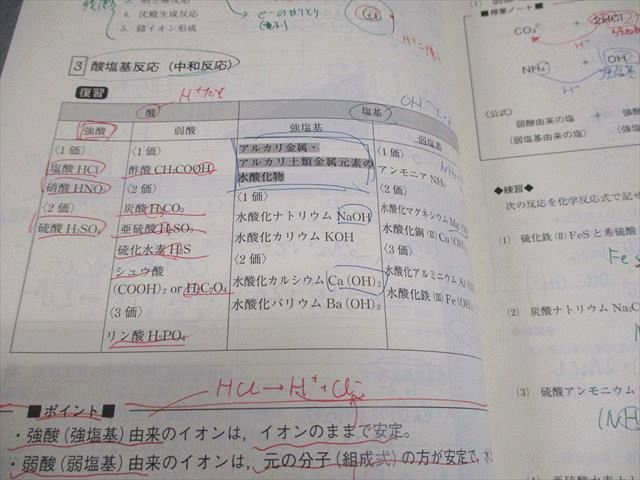 4. 沈殿生成反応
5. 錯イオン形成
3 酸塩基反応（中和反応）
復習
酸
塩基
強酸
弱酸
強塩基
弱塩基
〈1価〉
塩酸 HCl
硝酸 HNO₃
〈2価〉
硫酸 H₂SO₄
〈1価〉
酢酸 CH₃COOH
〈2価〉
炭酸 H₂CO₃
亜硫酸 H₂SO₃
硫化水素 H₂S
シュウ酸
(COOH)₂ or H₂C₂O₄
〈3価〉
リン酸 H₃PO₄
アルカリ金属・
アルカリ土類金属元素の
水酸化物
〈1価〉
水酸化ナトリウム NaOH
水酸化カリウム KOH
〈2価〉
水酸化カルシウム Ca(OH)₂
水酸化バリウム Ba(OH)₂
〈1価〉
アンモニア NH₃
〈2価〉
水酸化マグネシウム Mg
水酸化銅(Ⅱ) Cu(OH)
〈3価〉
水酸化アルミニウム Al
水酸化鉄(Ⅲ) Fe(OH)
HCl → H⁺ + Cl⁻
■ポイント■
・強酸(強塩基)由来のイオンは，イオンのままで安定。
・弱酸(弱塩基)由来のイオンは，元の分子(組成式)の方が安定で，
■授業ノート■
CO₃²⁻ + 2HCl
H⁺
NH₄ + OH⁻
H⁺
〈公式〉
弱酸由来の塩 + 強酸
(弱塩基由来の塩 (強塩
◆練習◆
次の反応を化学反応式で記せ
(1) 硫化鉄(Ⅱ)FeSと希硫酸
FeS
(2) 炭酸ナトリウム Na₂C
(3) 硫酸アンモニウム
(NH